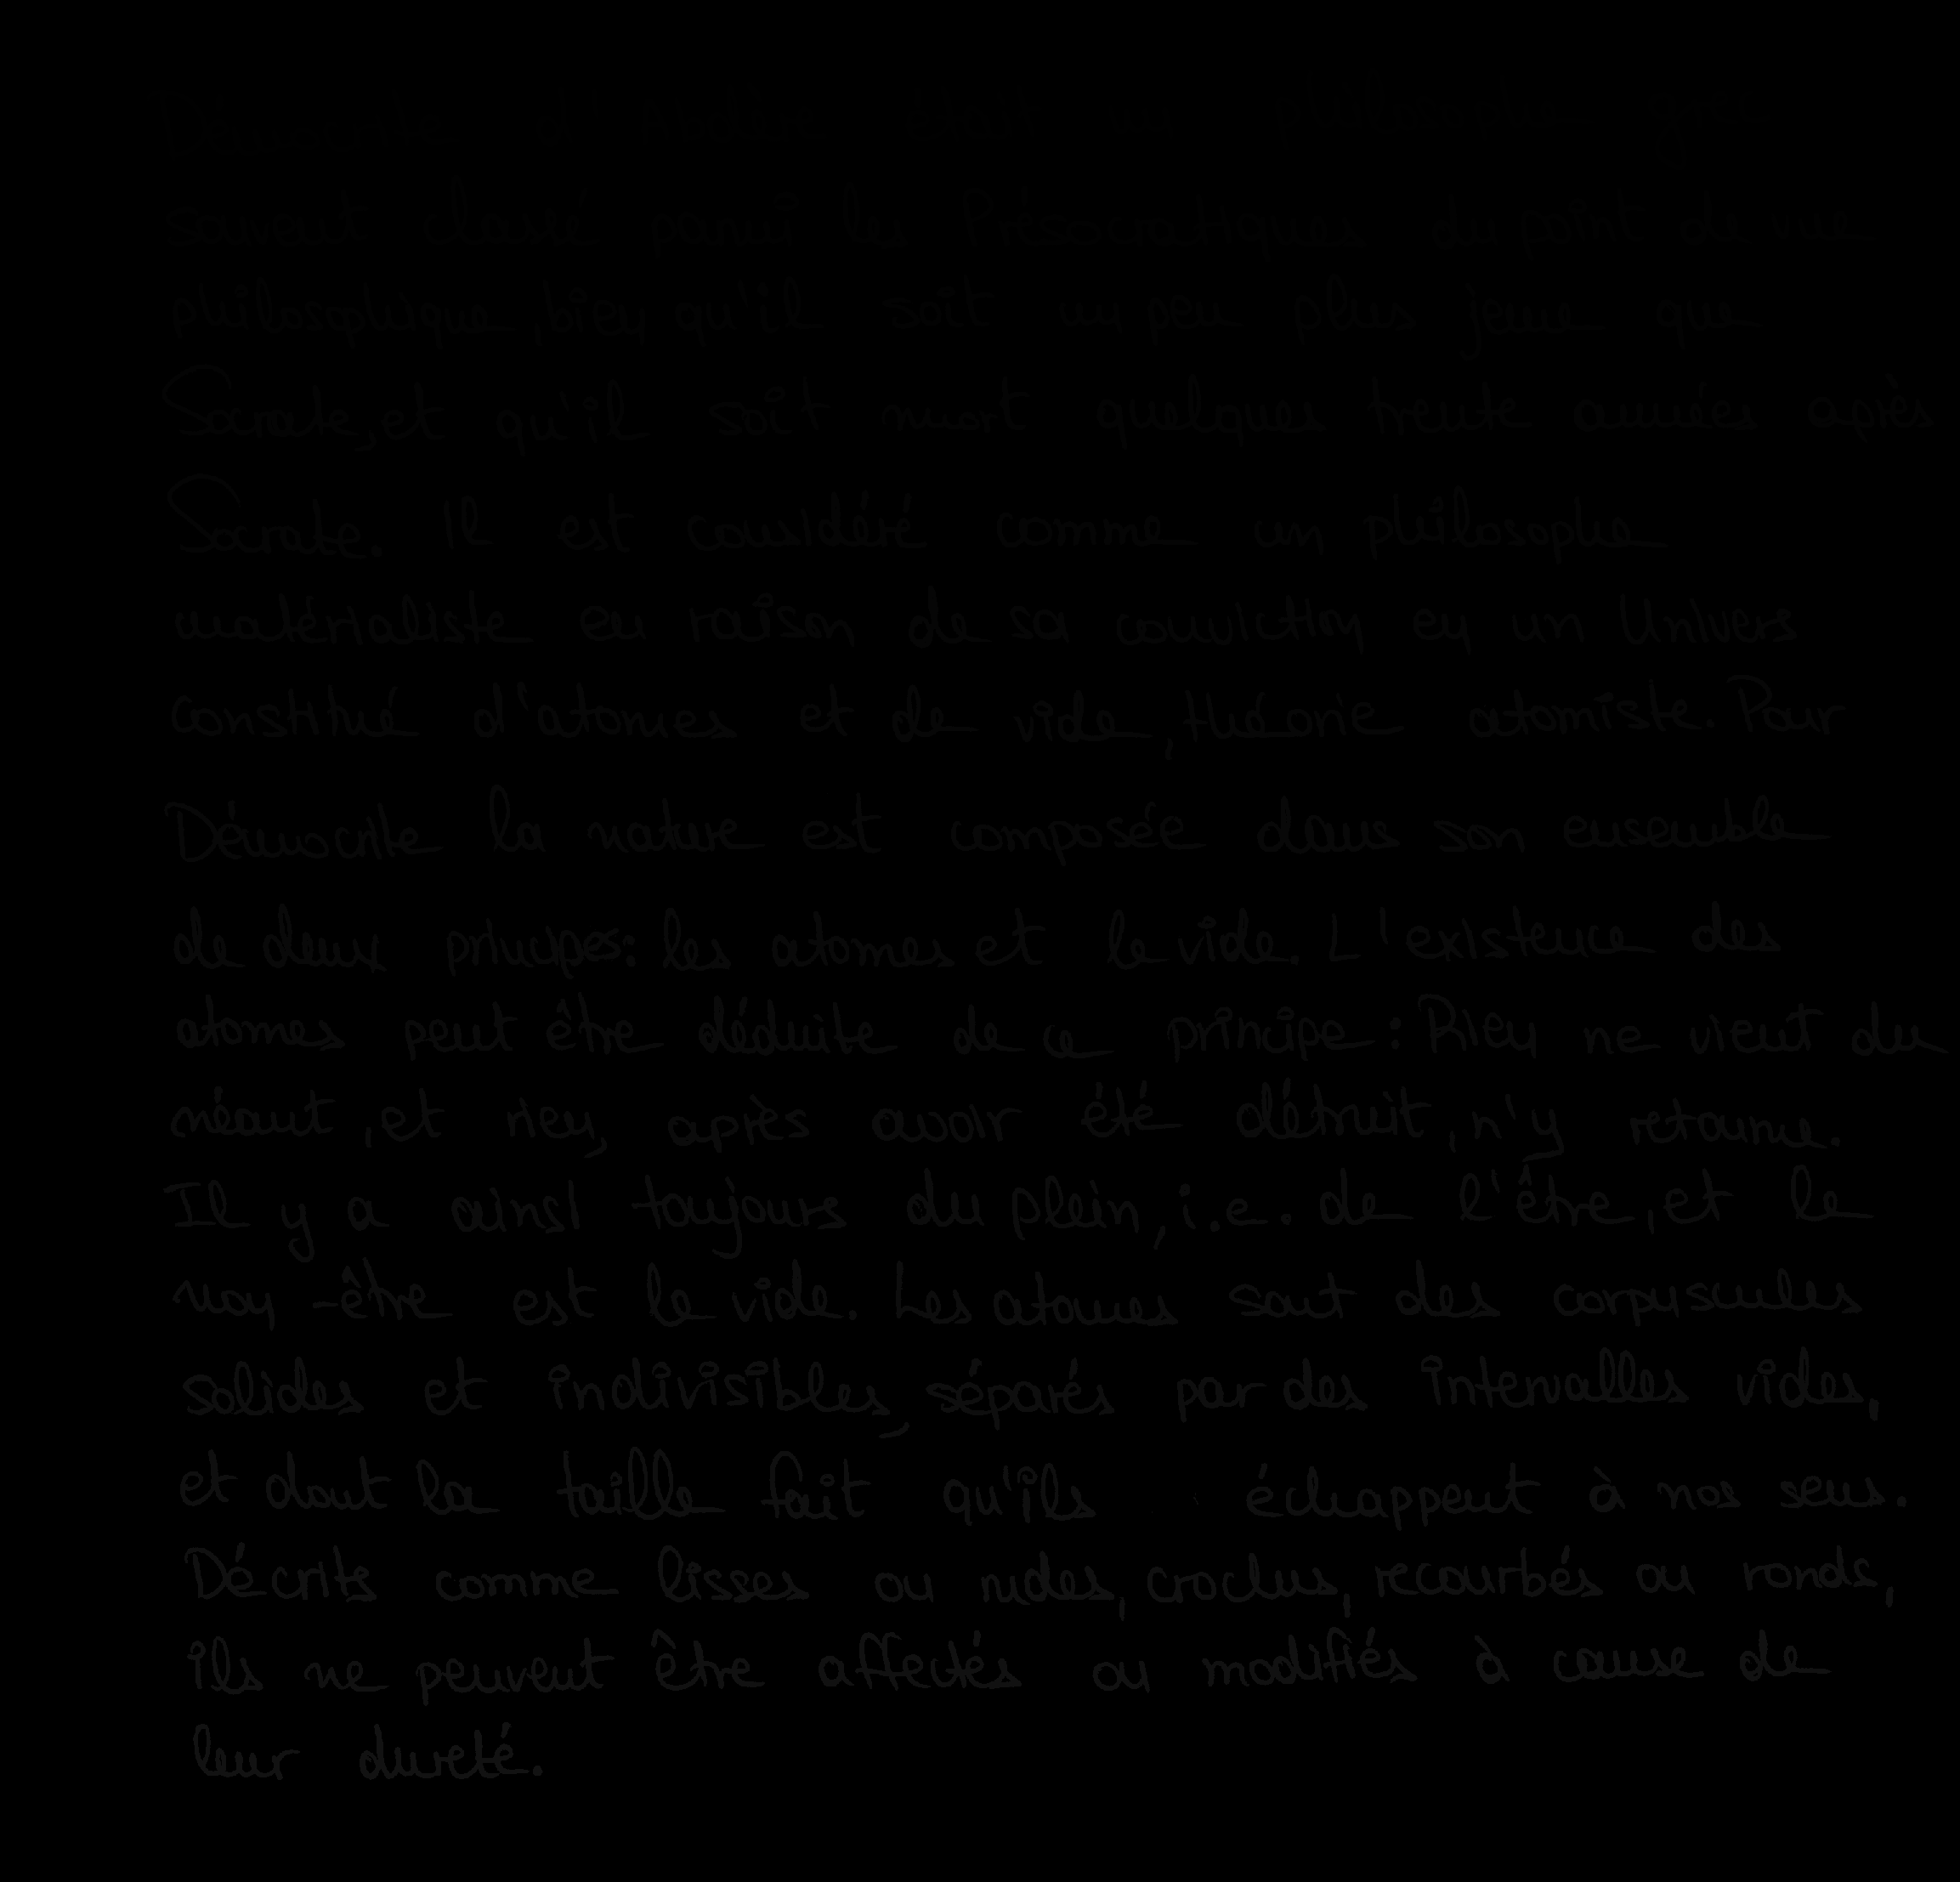 souvent classé parmi les Présocratiques du point de vue
philosophique, bien qu'il soit un peu plus jeune que
Socrate, et qu'il soit mort quelques trente années après
Socrate. Il est considéré comme un philosophe
matérialiste en raison de sa conviction en un Univers
constitué d'atomes et de vide, théorie atomiste. Pour
Démocrite la nature est composée dans son ensemble
de deux principes: les atomes et le vide. L'existence des
atomes peut être déduite de ce principe: Rien ne vient du
néant, et rien, après avoir été détruit, n'y retourne.
Il y a ainsi toujours du plein, i.e. de l'être, et le
non-être est le vide. Les atomes sont des corpuscules
solides et indivisibles, séparés par des intervalles vides,
et dont la taille fait qu'ils échappent à nos sens.
Décrits comme lisses ou rudes, crochus, recourbés ou ronds,
ils ne peuvent être affectés ou modifiés à cause de
leur dureté.